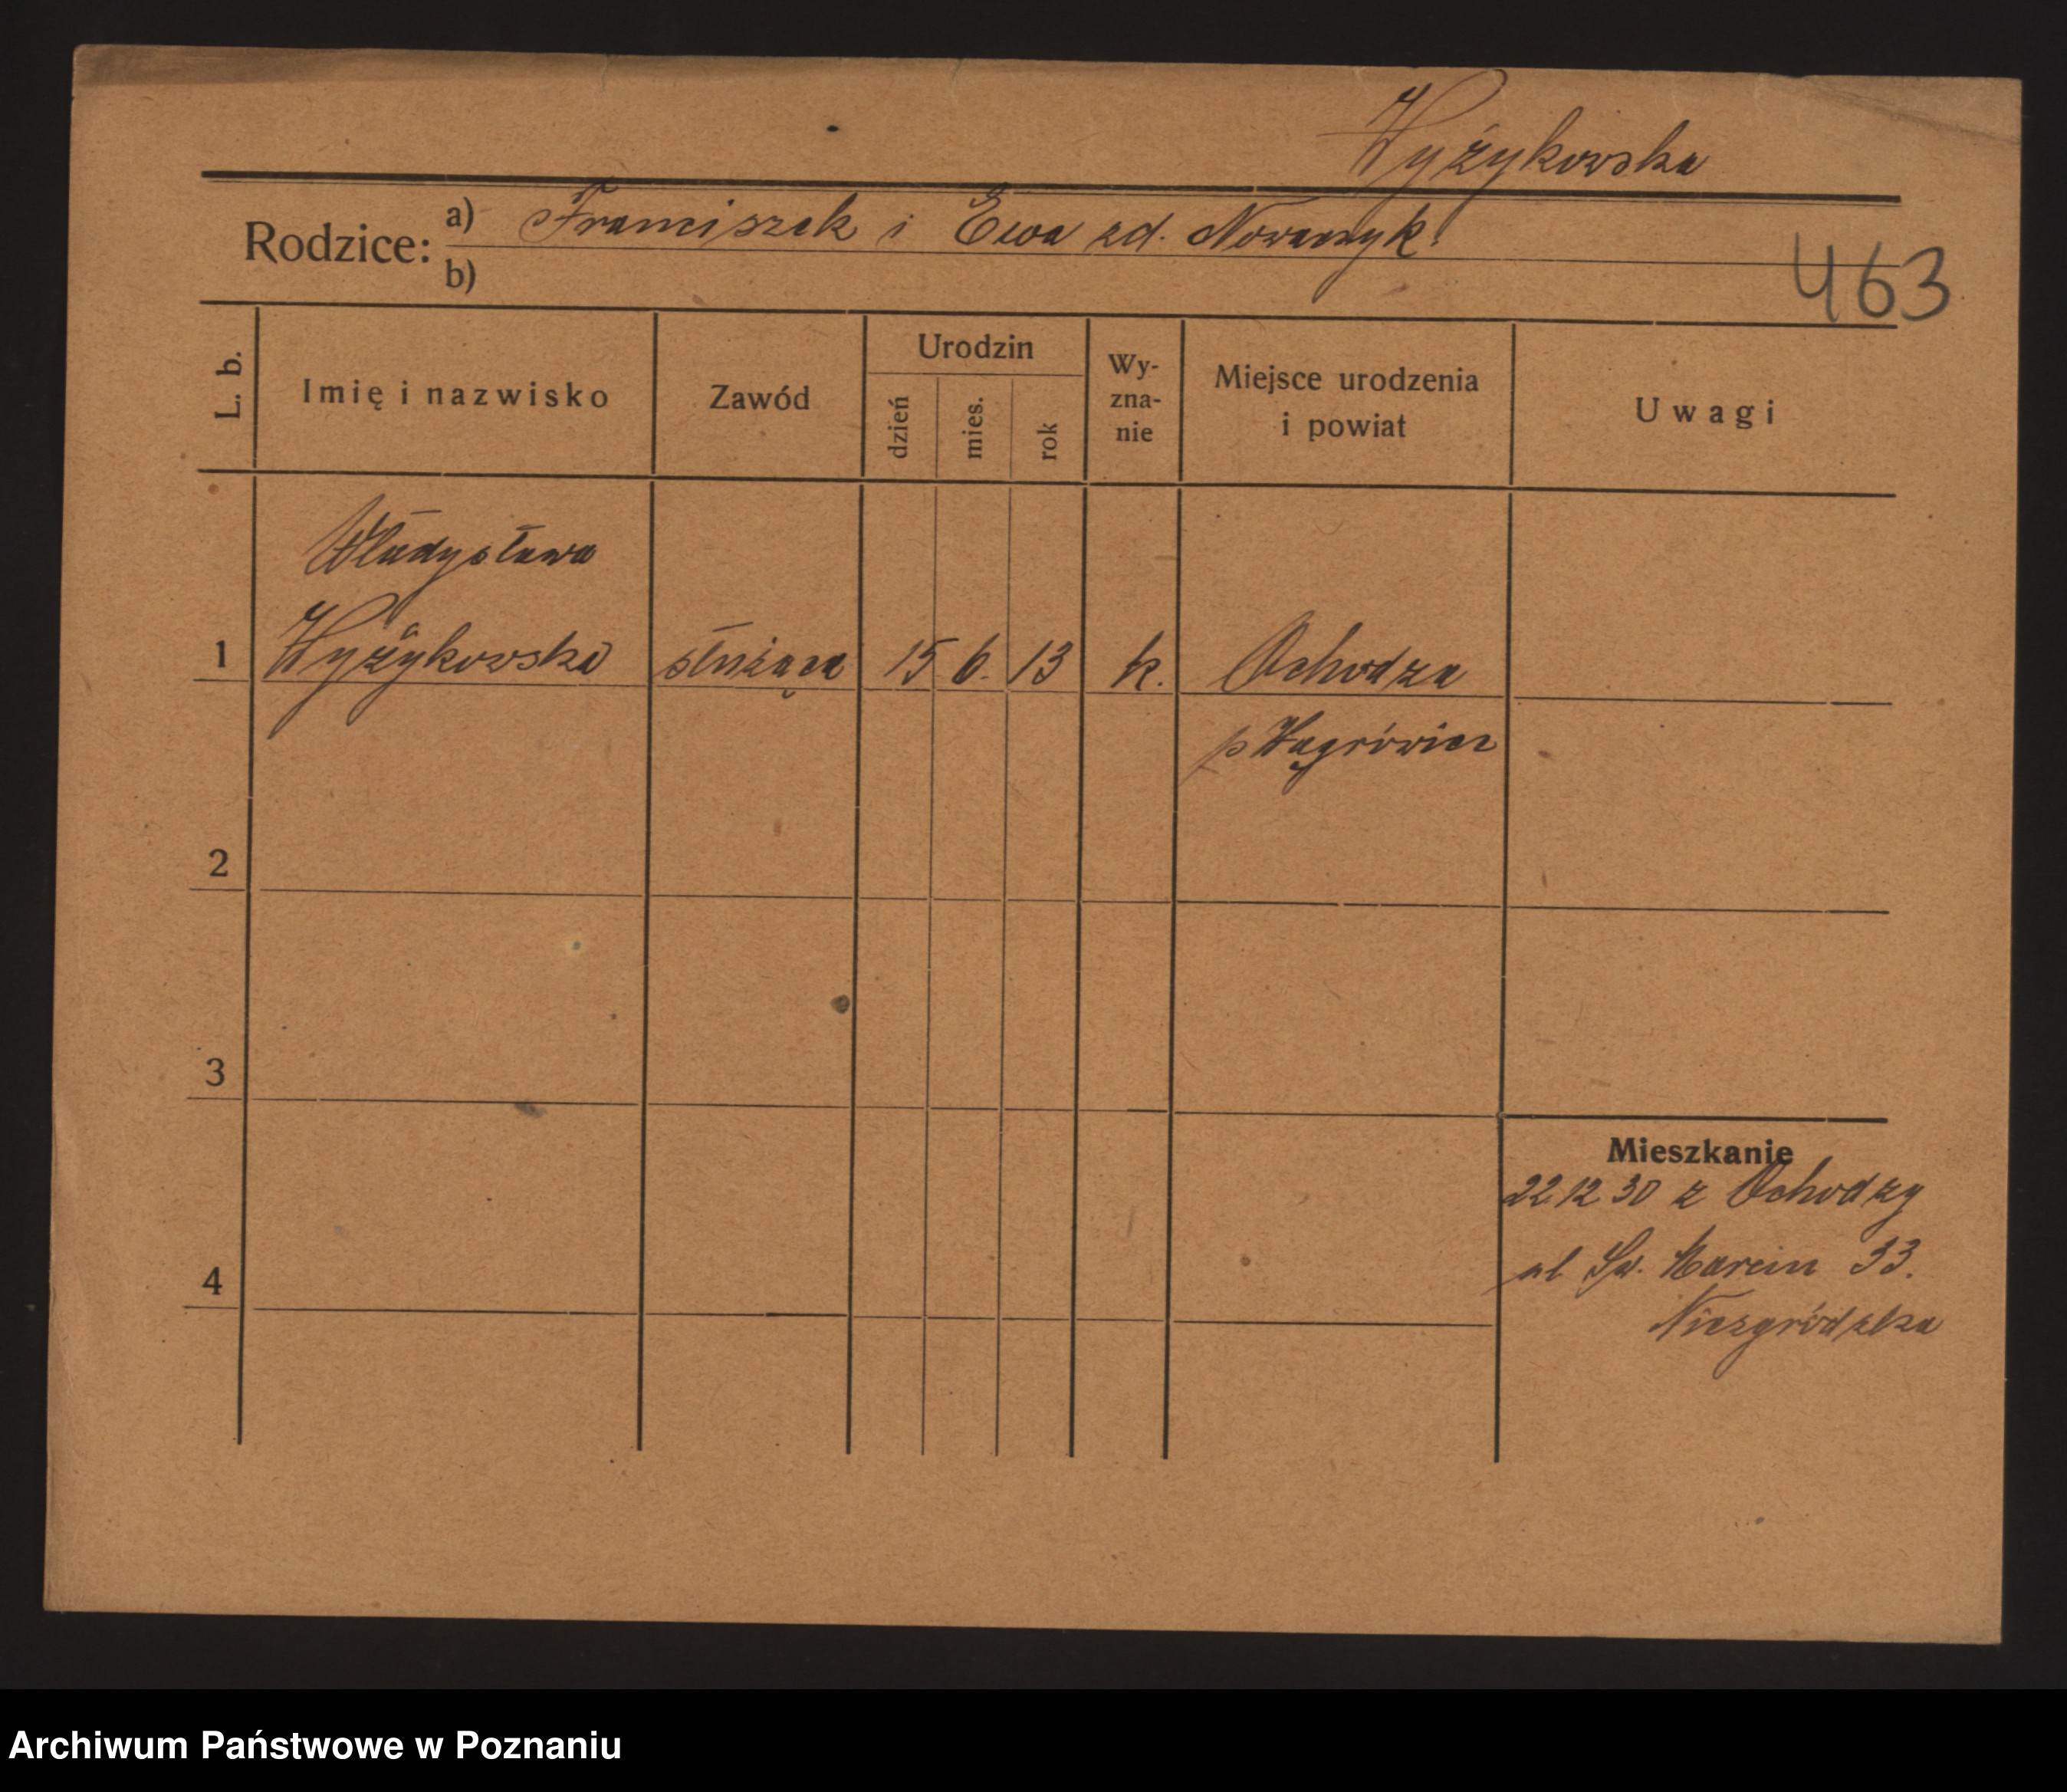 Wyżykowska
Rodzice: a) Franciszek i Ewa zd. Nowaczyk.
b)
463
L. b.
Imię i nazwisko
Zawód
Urodzin
dzień
mies.
rok
Wy-
zna-
nie
Miejsce urodzenia
i powiat
Uwagi
Władysława
1 Wyżykowska służąca 15 6. 13 k. Ochodza
p Wągrówiec
2
3
Mieszkanie
22 12 30 z Ochodzy
ul Św. Marcin 33.
4